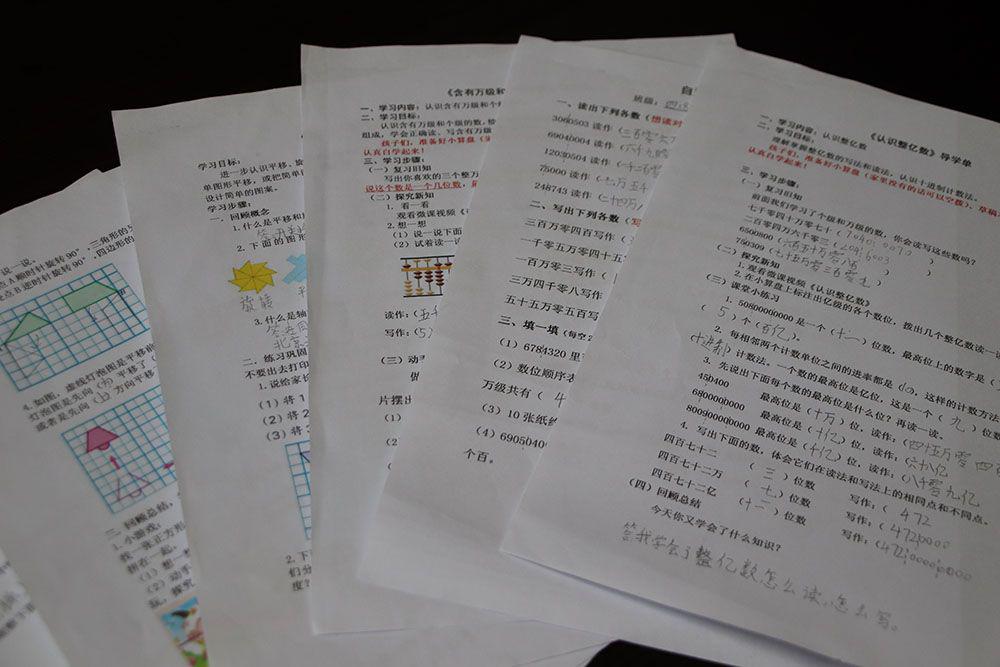 说一说。
点A顺时针旋转90°,三角形的
点B逆时针旋转90°,四边形的
4. 如图,虚线灯泡图是平移前
灯泡图是先向( )平移了(
或者是先向( )方向平移
二、回顾总结:
1. 小游戏:
找一张正方形
拼在一起。
(1)想一
(2)动手
玩,探究
学习目标:
进一步认识平移、旋
单图形平移,或把简单
设计简单的图案。
学习步骤:
一、回顾概念
1. 什么是平移和
2. 下面的图形
旋转
3. 什么是轴
二、练习巩固
不要出去打印
1. 说给家长
(1)将1
(2)将2
(3)将3
2. 下
们分
度?
《含有万级和
一、学习内容:认识含有万级和个
二、学习目标:
认识含有万级和个级的数,
组成,学会正确读、写含有万级
孩子们,准备好小算盘(
认真自学起来!
三、学习步骤:
(一)复习旧知
写出你喜欢的三个整万
说这个数是一个几位数,
(二)探究新知
1. 看一看
观看微课视频《
2. 想一想
(1)说一说下面
(2)试着读一读
读作:(五千
写作:(5
(三)动
片摆出
自
班级:四
一、读出下列各数(想读对
3060503 读作(三百零六万
6904004 读作(六百九十
12030504 读作(一千二百
75000 读作(七万五千
248743 读作(二十四万
二、写出下列各数(写
三百万零四百写作(
一千零五万零四十
一百万零三写作(
三万四千零八写作
五十五万零五百写
三、填一填(每空2
(1)6784320 里
(2)数位顺序表
万级共有( 4
(3)10 张纸
(4)6905040
个百。
《认识整亿数》导学单
一、学习内容:认识整亿数
二、学习目标:
理解掌握整亿数的写法和读法。认识十进制计数法。
孩子们,准备好小算盘(家里没有的话可以空拨)、草稿
认真自学起来!
三、学习步骤:
(一)复习旧知
前面我们学习了个级和万级的数,你会读写这些数吗?
七千零四十万零七十(70400070)
二百零四万六千零三(2046003)
6500800(六百五十万零八百)
750309(七十五万零三百零九)
(二)探究新知
1. 观看微课视频《认识整亿数》
2. 在小算盘上标注出亿级的各个数位,拨出几个整亿数读一读
(三)课堂小练习
1. 50800000000 是一个(十一)位数,最高位上的数字是(
( 5 )个(百亿)。
2. 每相邻两个计数单位之间的进率都是( 10 ),这样的计数方法
(十进制)计数法。一个数的最高位是亿位,这是一个( 九 )位数
3. 先说出下面每个数的最高位是什么位?再读一读。
450400 最高位是(十万)位,读作:(四十五万零四百
6800000000 最高位是(十亿)位,读作:(六十八亿
800900000000 最高位是(千亿)位,读作:(八千零九亿
4. 写出下面的数,体会它们在读法和写法上的相同点和不同点。
四百七十二 ( 三 )位数 写作:( 472
四百七十二万 ( 七 )位数 写作:( 4720000
四百七十二亿 (十一)位数 写作:(47200000000
(四)回顾总结
今天你又学会了什么知识?
答我学会了整亿数怎么读,怎么写。